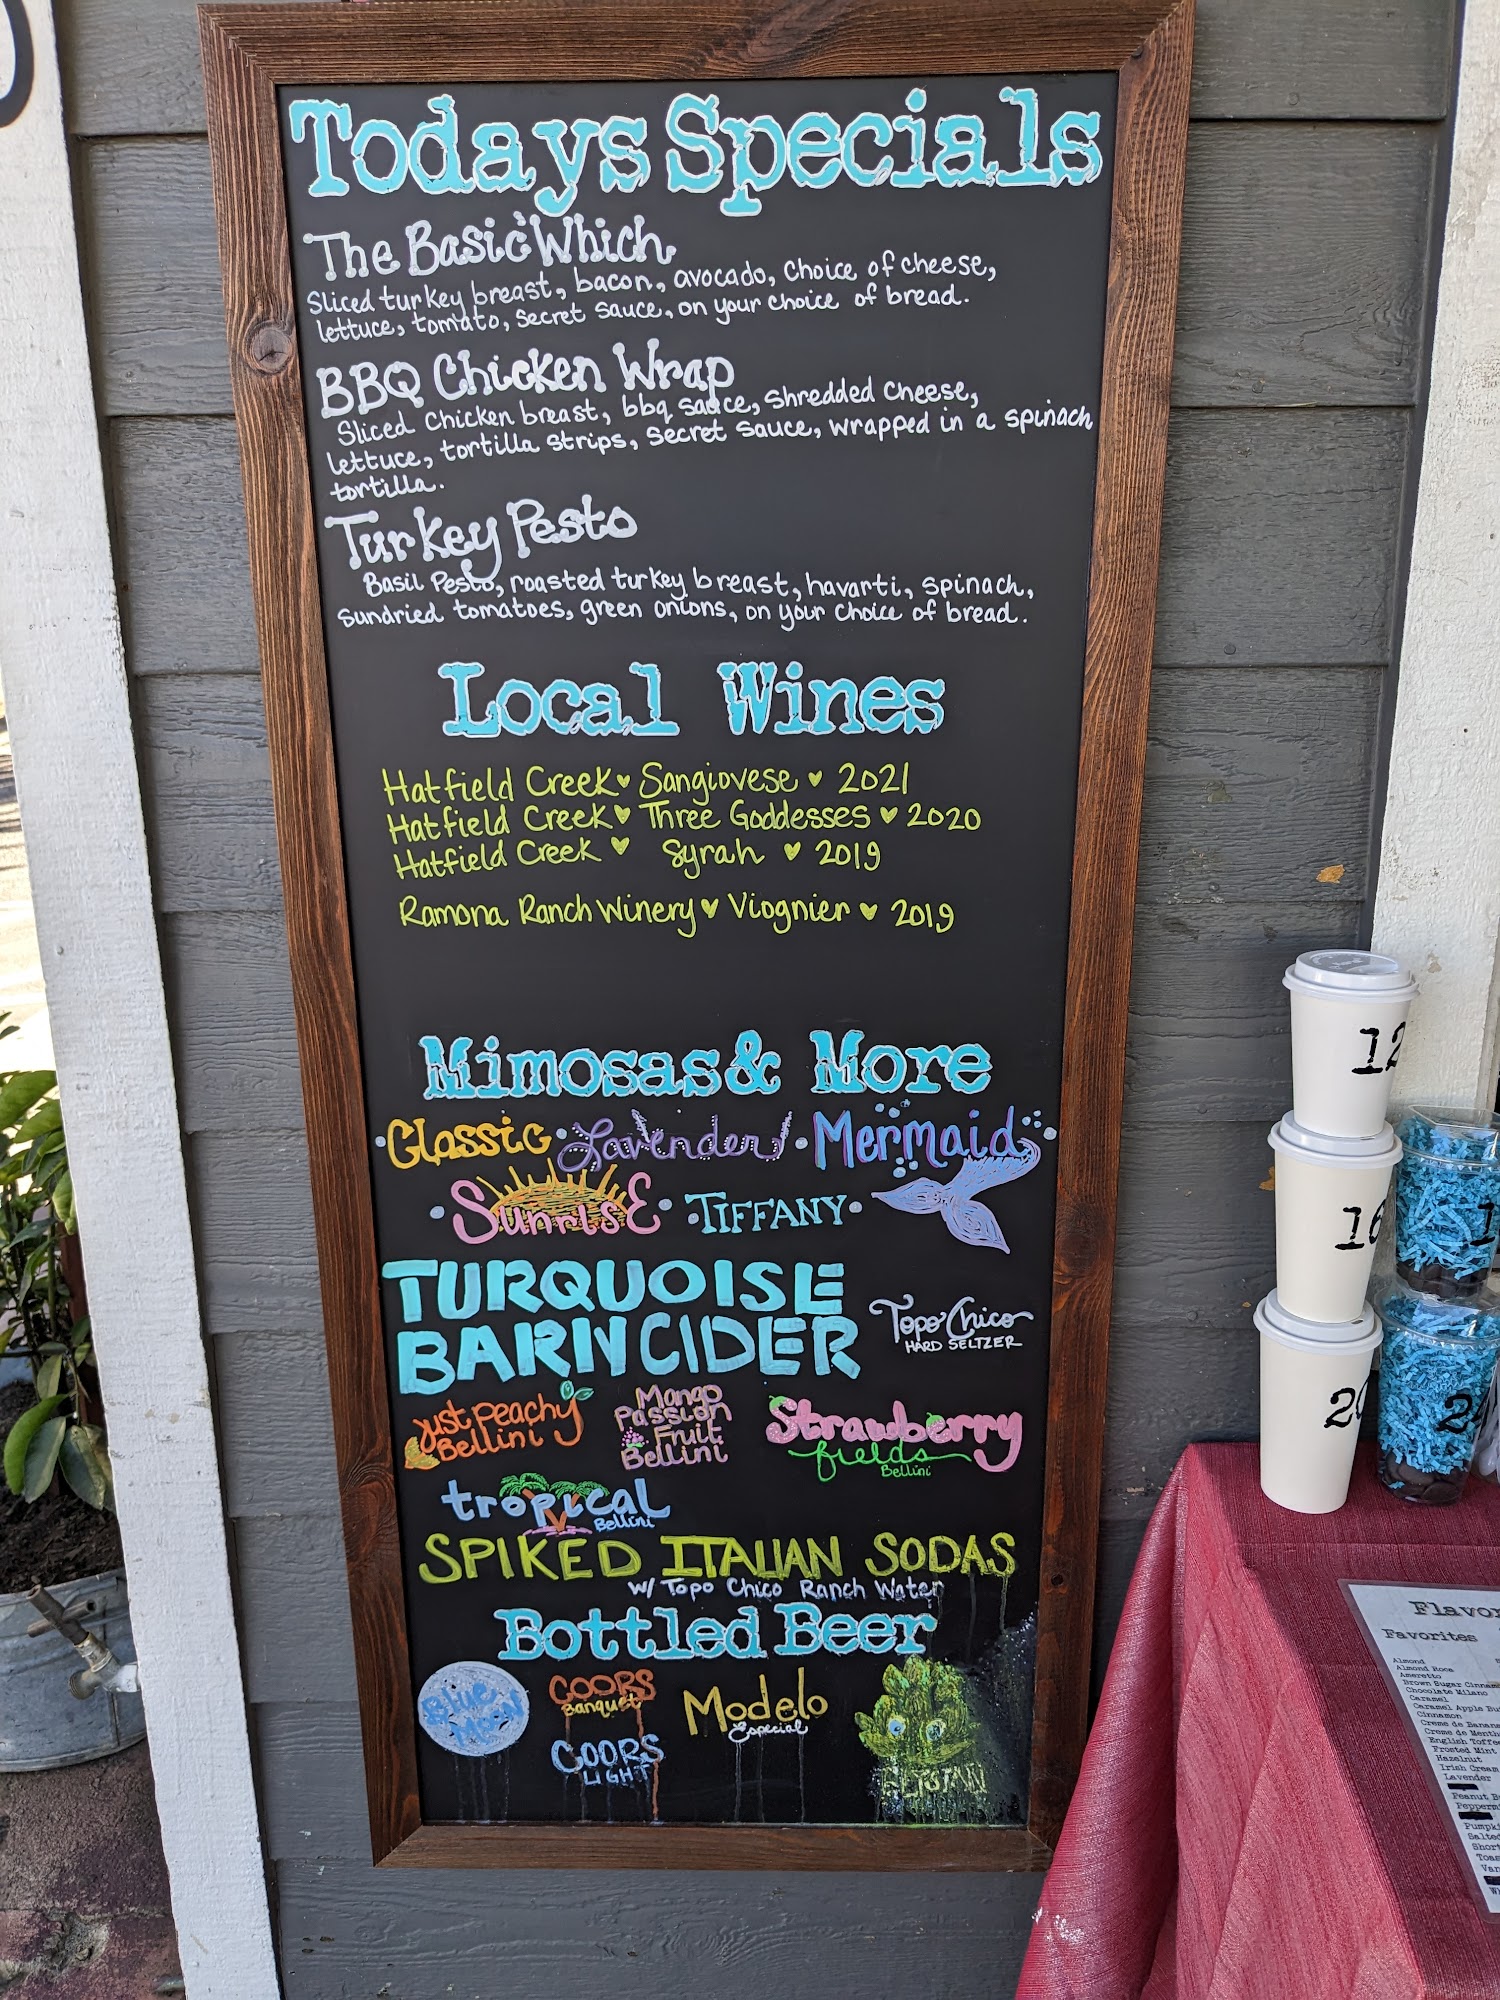 Todays Specials
The Basic Which
Sliced turkey breast, bacon, avocado, choice of cheese,
lettuce, tomato, secret sauce, on your choice of bread.
BBQ Chicken Wrap
Sliced Chicken breast, bbq sauce, shredded cheese,
lettuce, tortilla strips, secret sauce, wrapped in a spinach
tortilla.
Turkey Pesto
Basil Pesto, roasted turkey breast, havarti, spinach,
sundried tomatoes, green onions, on your choice of bread.
Local Wines
Hatfield Creek ♥ Sangiovese ♥ 2021
Hatfield Creek ♥ Three Goddesses ♥ 2020
Hatfield Creek ♥ Syrah ♥ 2019
Ramona Ranch Winery ♥ Viognier ♥ 2019
Mimosas & More
• Classic • Lavender • Mermaid •
• Sunrise • Tiffany •
TURQUOISE
BARN CIDER
Topo Chico
HARD SELTZER
Just Peachy
Bellini
Mango
Passion
Fruit
Bellini
Strawberry
fields
Bellini
tropical
Bellini
SPIKED ITALIAN SODAS
w/ Topo Chico Ranch Water
Bottled Beer
Blue
Moon
COORS
Banquet
COORS
LIGHT
Modelo
Especial
12
16
20
Flavor
Favorites
Almond
Almond Roca
Amaretto
Brown Sugar Cinnam
Chocolate Milano
Caramel
Caramel Apple Bu
Cinnamon
Creme de Banana
Creme de Menth
English Toffee
Frosted Mint
Hazelnut
Irish Cream
Lavender
Peanut B
Peppermi
Pumpki
Salted
Short
Toas
Van